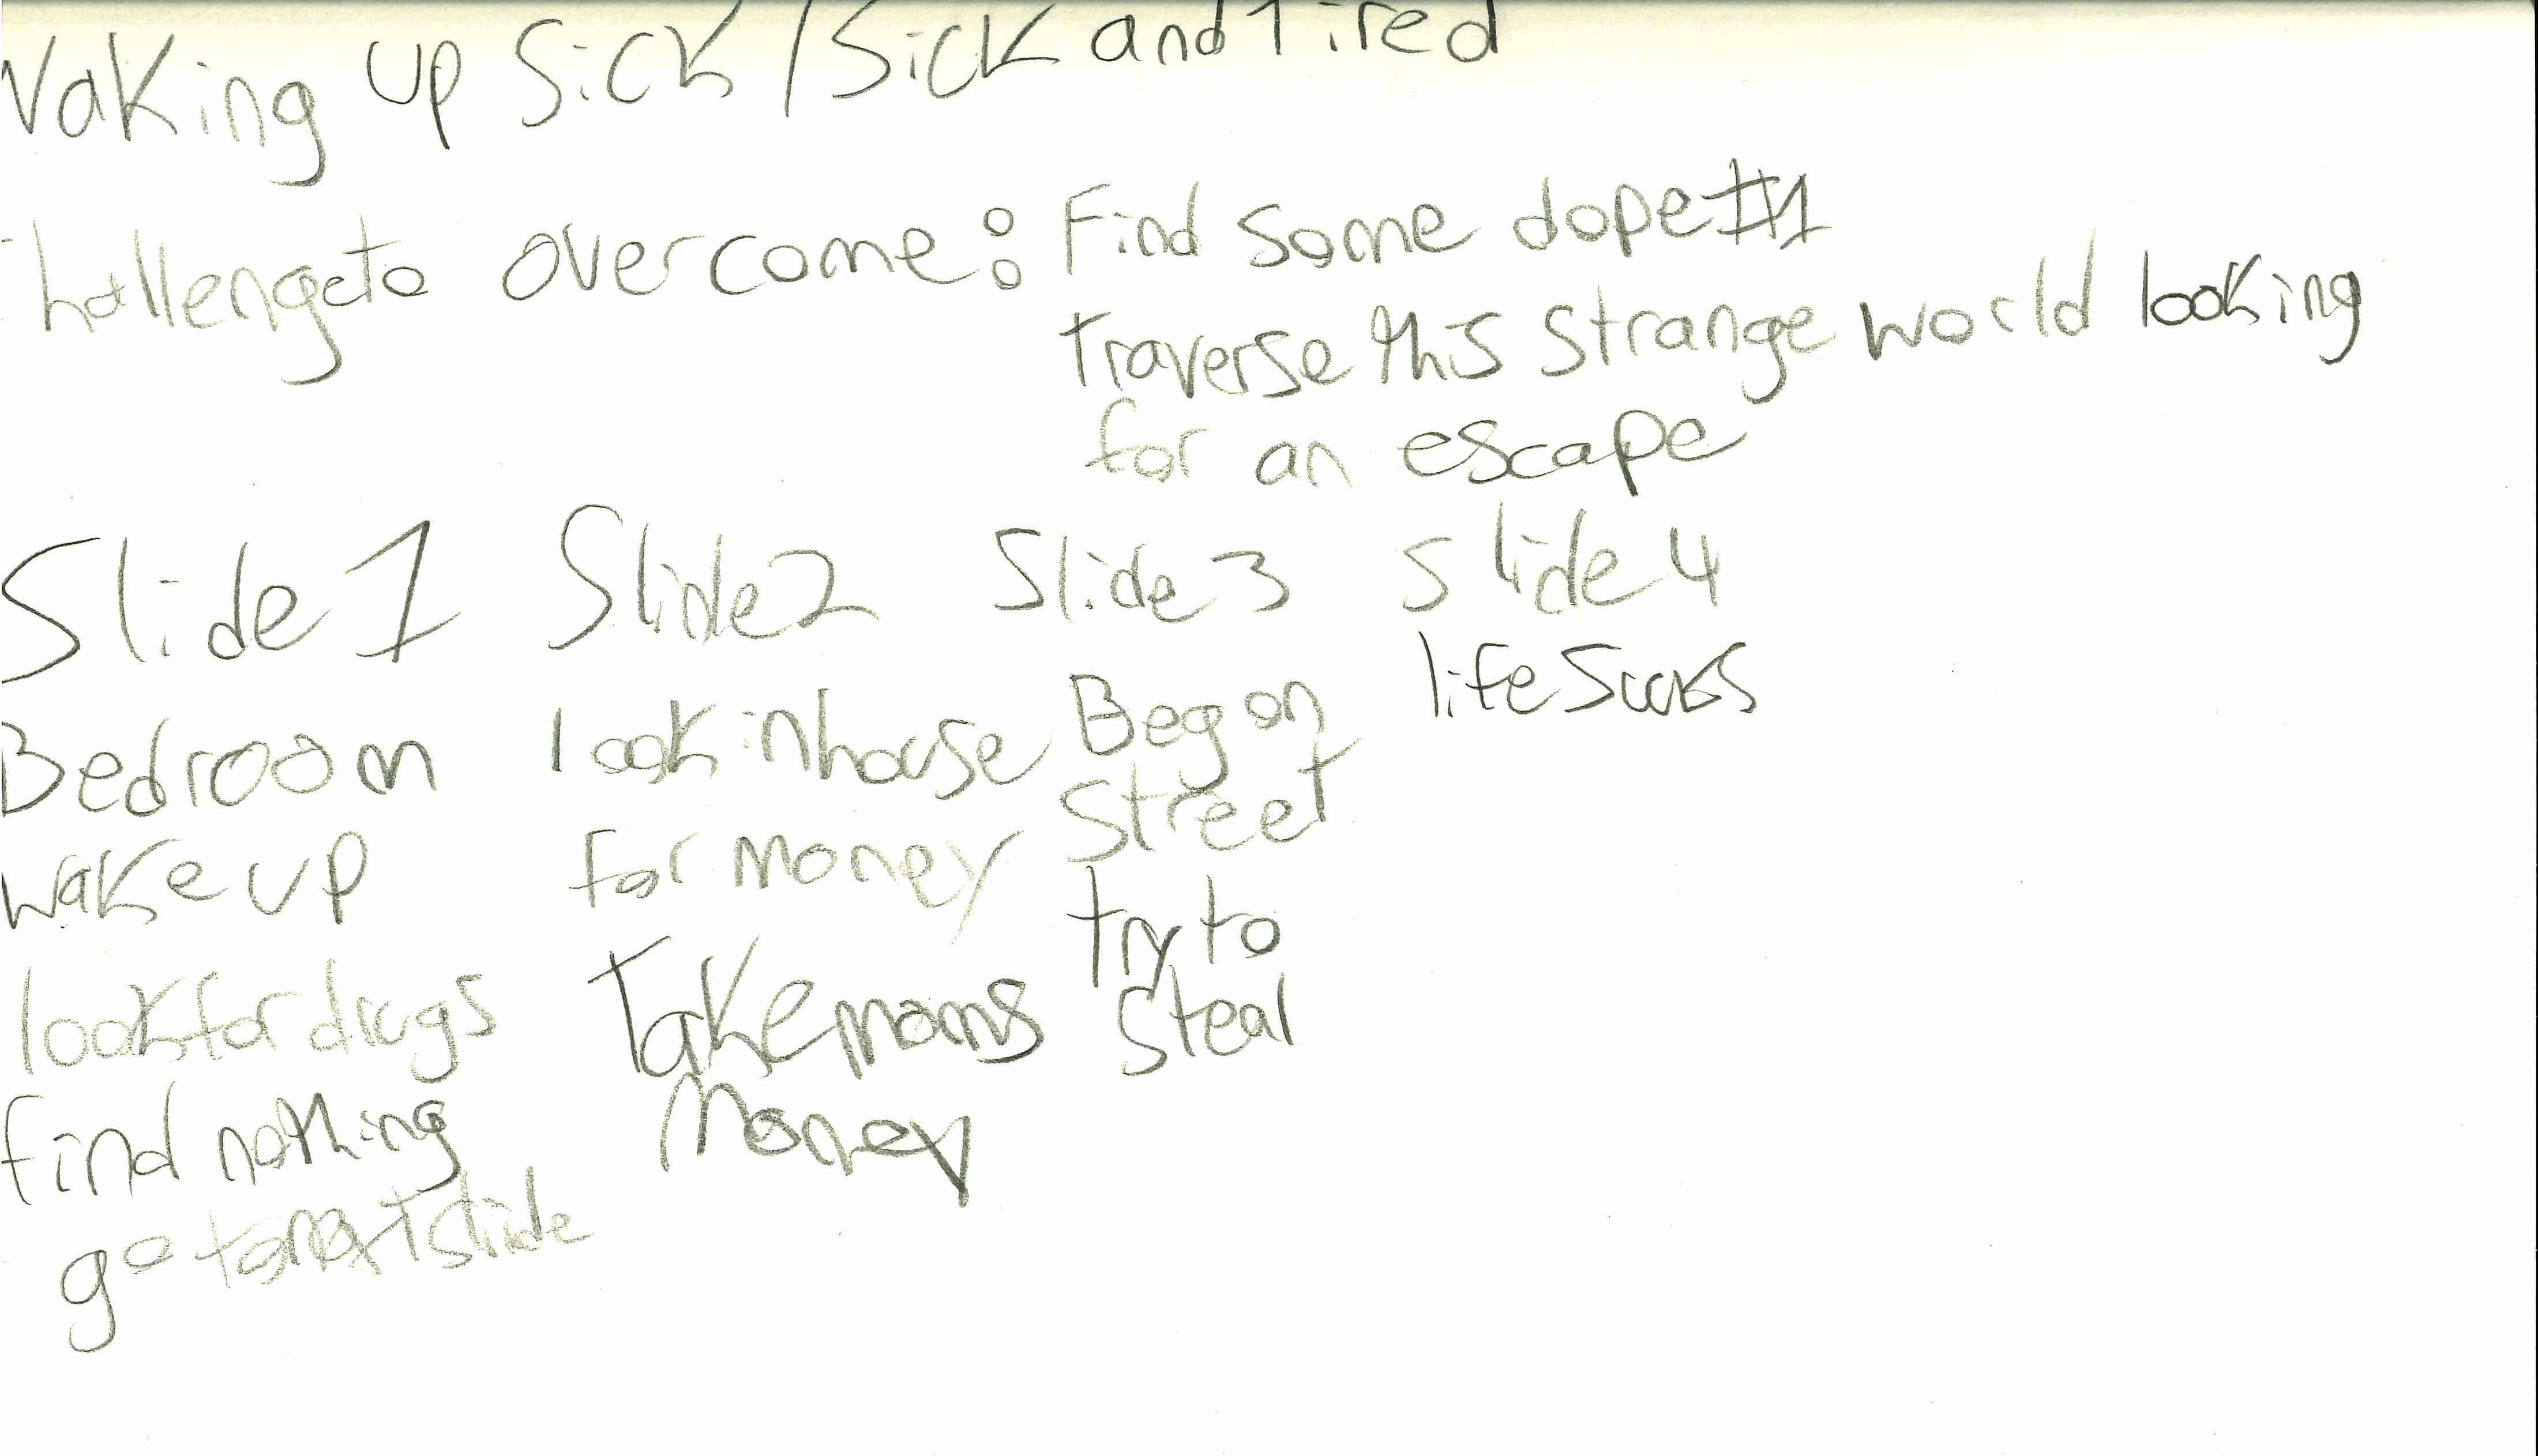 Waking up Sick / Sick and Tired
Challenge to overcome: Find some dope #1
Traverse this strange world looking
for an escape
Slide 1 Slide 2 Slide 3 Slide 4
Bedroom
wake up
look for drugs
find nothing
go to next slide
look in house
for money
Take moms
money
Beg on
street
try to
steal
life sucks